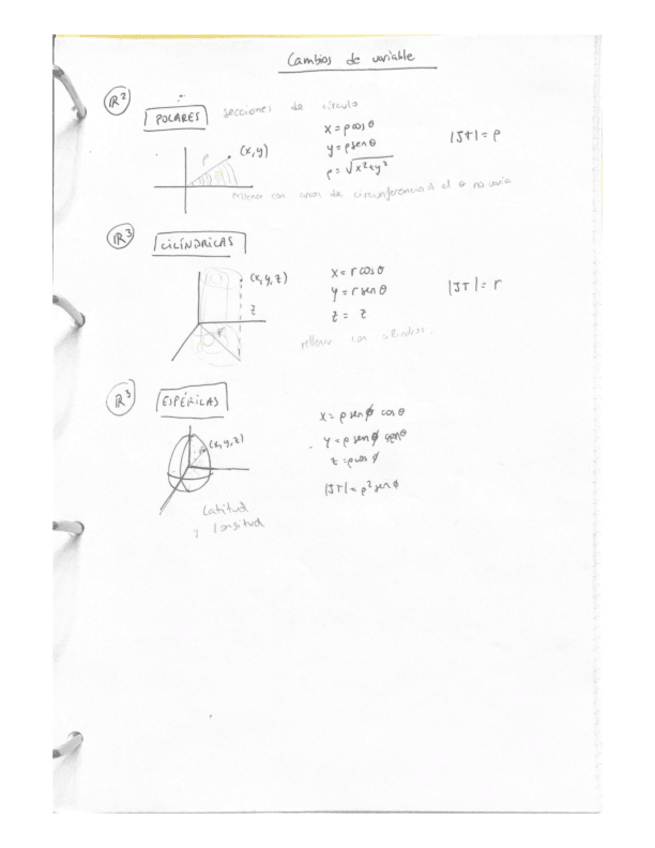 Cambios de variable
ℝ²
POLARES secciones de círculo
x = ρ cos θ
y = ρ sen θ
ρ = √x²+y²
|JT| = ρ
ρ (x,y)
rellenar con arcos de circunferencia el θ no varía
ℝ³
CILÍNDRICAS
(x,y,z)
z
r
x = r cos θ
y = r sen θ
z = z
|JT| = r
rellenar con cilindros.
ℝ³
ESFÉRICAS
(x,y,z)
x = ρ sen ϕ cos θ
y = ρ sen ϕ sen θ
z = ρ cos ϕ
|JT| = ρ² sen ϕ
Latitud
y longitud